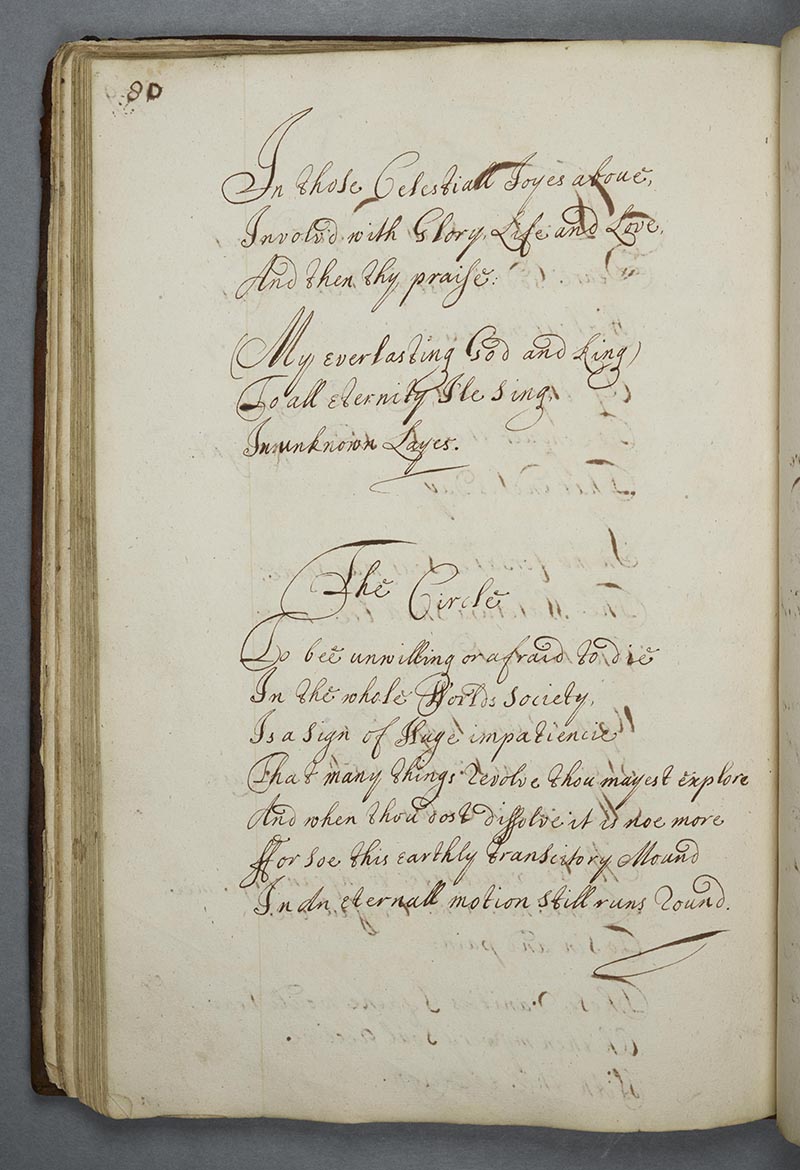 80
In those Celestiall Joyes above,
Involv'd with Glory, Life and Love,
And then thy praise:
(My everlasting God and King)
To all eternity I'le sing,
In unknown Layes.
The Circle
To bee unwilling or afraid to die
In the whole Worlds society,
Is a sign of Huge impatiencie
That many things revolve thou mayest explore
And when thou dost dissolve it is noe more
Ffor soe this earthly transcitory Mound
In An eternall motion still runs round.